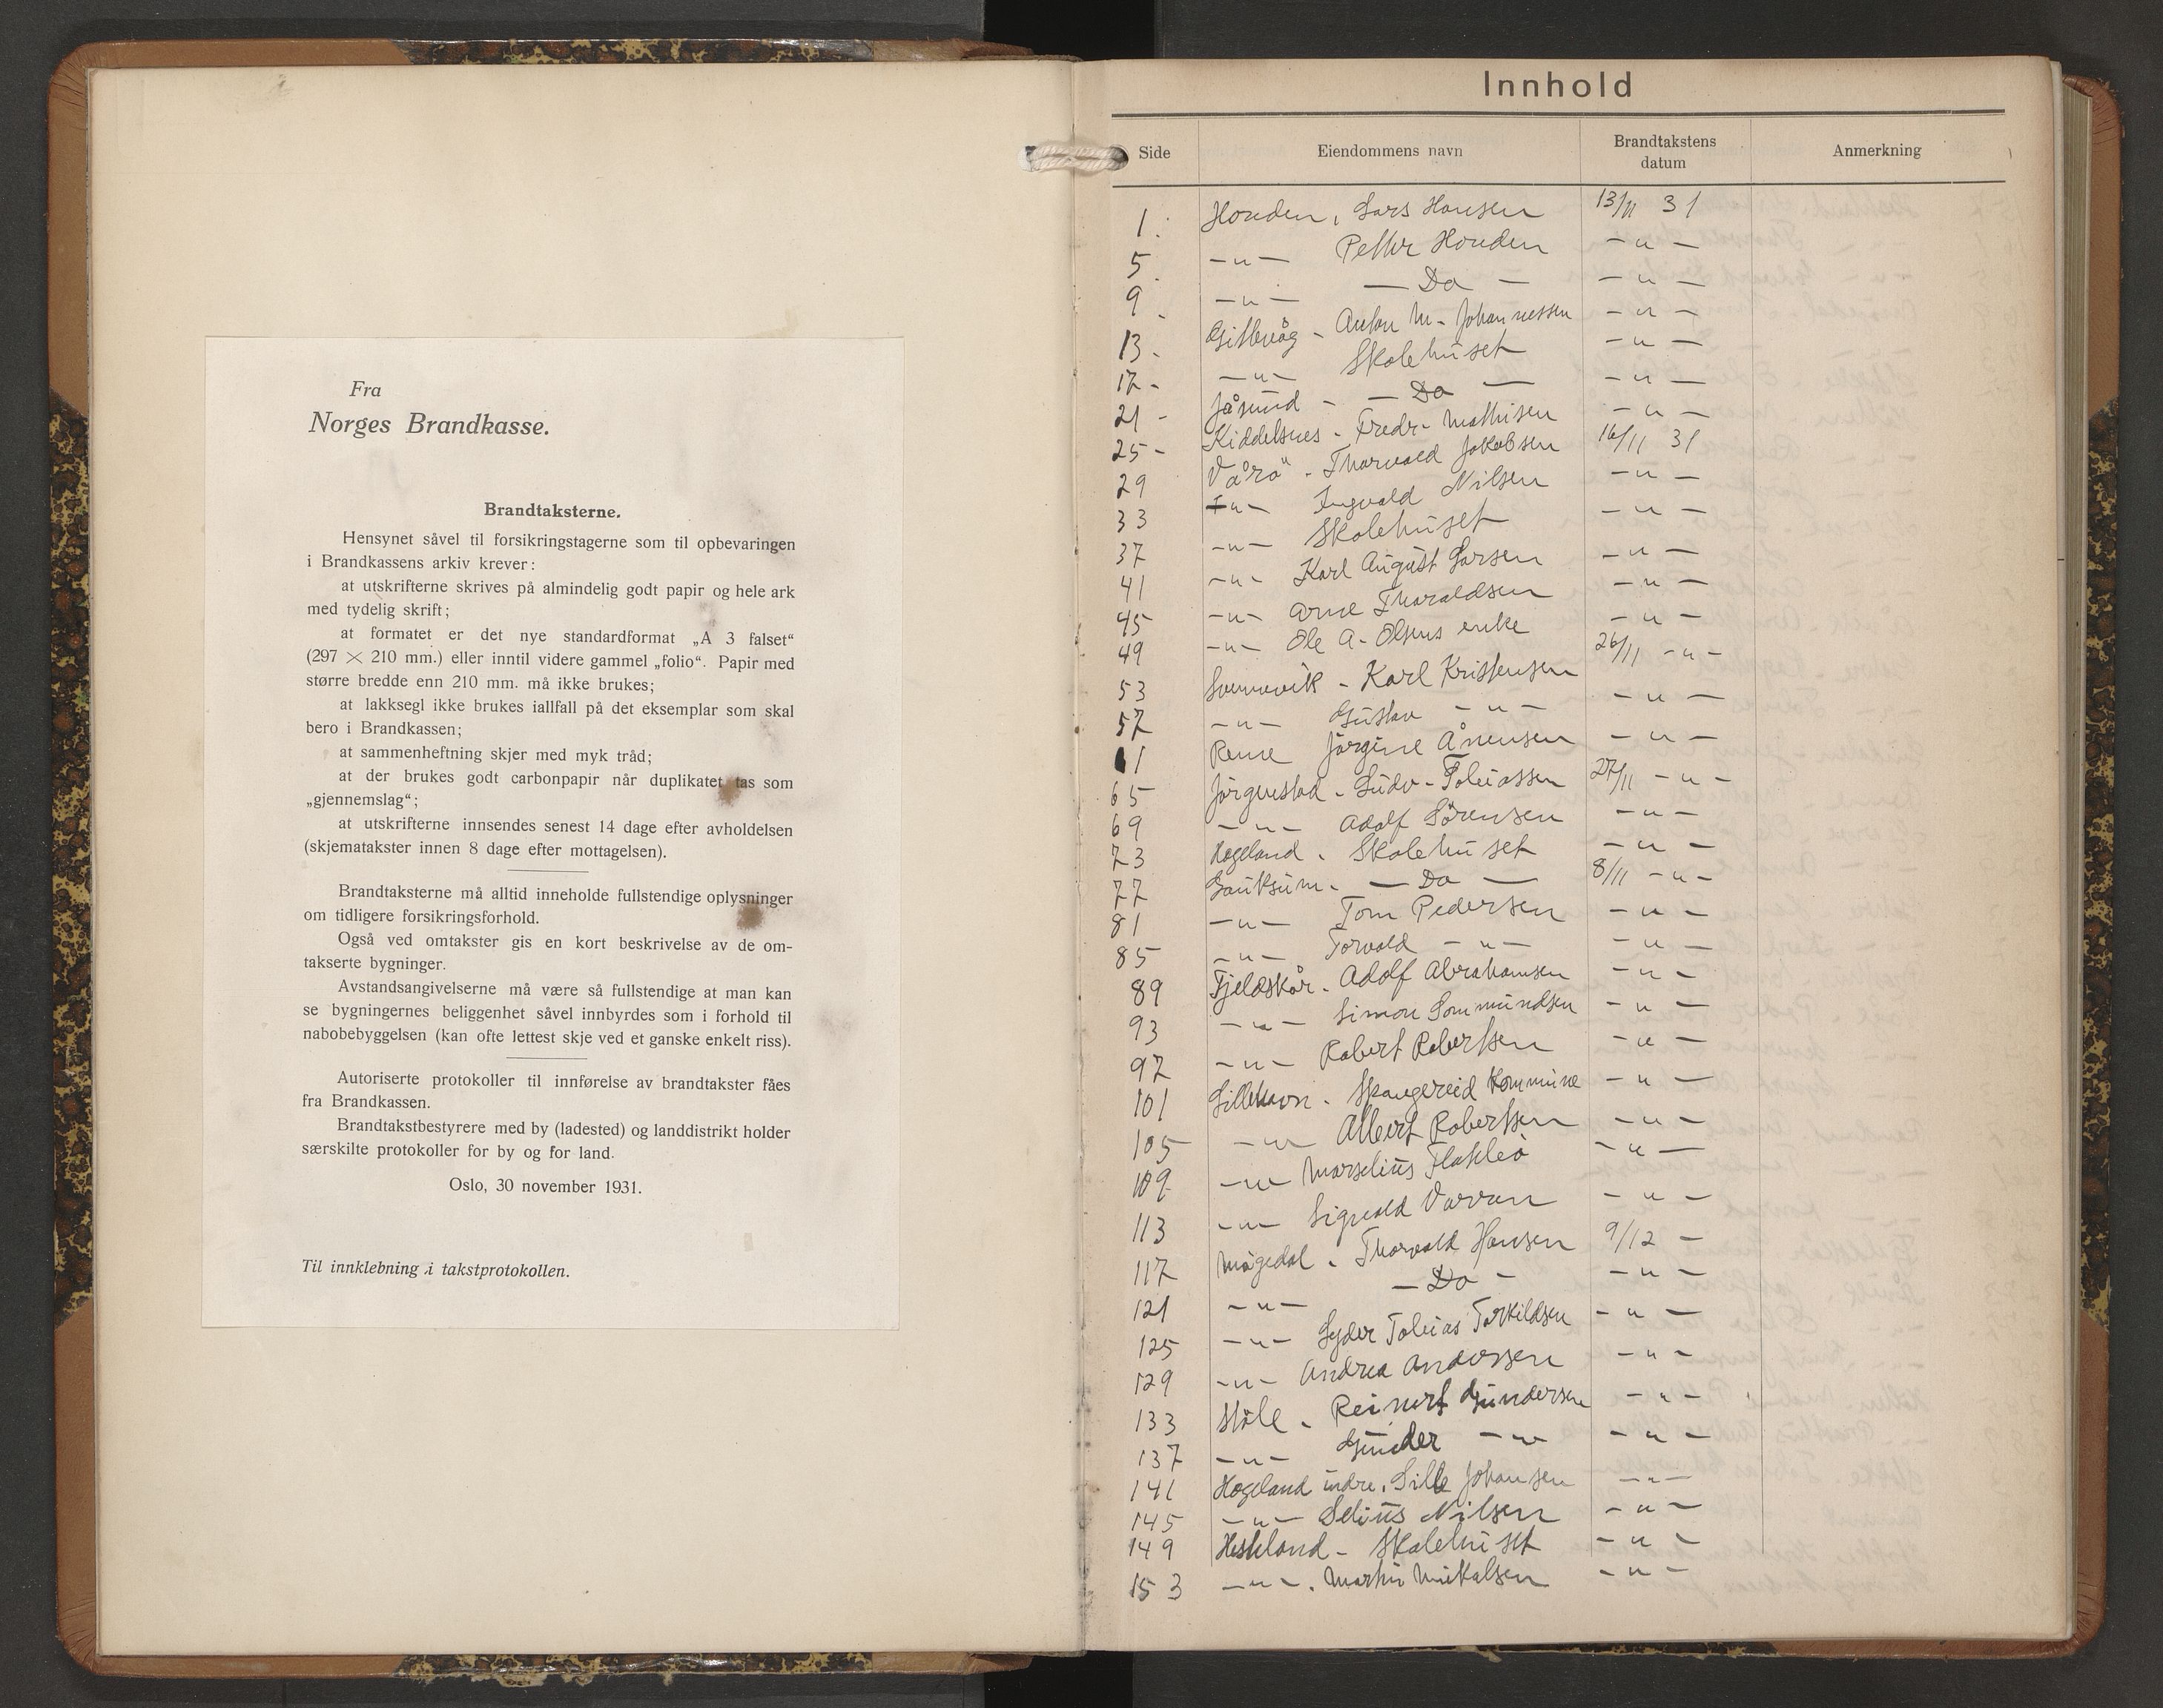 Fra
Norges Brandkasse.
Brandtaksterne.
Hensynet såvel til forsikringstagerne som til opbevaringen
i Brandkassens arkiv krever:
at utskrifterne skrives på almindelig godt papir og hele ark
med tydelig skrift;
at formatet er det nye standardformat „A 3 falset“
(297 × 210 mm.) eller inntil videre gammel „folio“. Papir med
større bredde enn 210 mm. må ikke brukes;
at lakksegl ikke brukes iallfall på det eksemplar som skal
bero i Brandkassen;
at sammenheftning skjer med myk tråd;
at der brukes godt carbonpapir når duplikatet tas som
„gjennemslag“;
at utskrifterne innsendes senest 14 dage efter avholdelsen
(skjematakster innen 8 dage efter mottagelsen).
Brandtaksterne må alltid inneholde fullstendige oplysninger
om tidligere forsikringsforhold.
Også ved omtakster gis en kort beskrivelse av de om-
takserte bygninger.
Avstandsangivelserne må være så fullstendige at man kan
se bygningernes beliggenhet såvel innbyrdes som i forhold til
nabobebyggelsen (kan ofte lettest skje ved et ganske enkelt riss).
Autoriserte protokoller til innførelse av brandtakster fåes
fra Brandkassen.
Brandtakstbestyrere med by (ladested) og landdistrikt holder
særskilte protokoller for by og for land.
Oslo, 30 november 1931.
Til innklebning i takstprotokollen.
Innhold
Side Eiendommens navn Brandtakstens datum Anmerkning
1. Houden, Lars Hansen 13/11 31
5. -"- Petter Houden -"-
9. -"- - Do - -"-
13. Gittevåg - Anton M. Johannessen -"-
17- -"- Skolehuset -"-
21- Jåsund - - Do - -"-
25- Kiddelsnes - Fredr. Mathisen -"-
29 Vårö - Thorvald Jakobsen 16/11 31
33 -"- Ingvald Nilsen -"-
37 -"- Skolehuset -"-
41 -"- Karl August Larsen -"-
45 -"- Arne Tharaldsen -"-
49 -"- Ole A. Olsens enke -"-
53 Svennevik - Karl Kristensen 26/11 -"-
57 -"- Gustav -"- -"-
61 Renne Jörgine Ånensen -"-
65 Jörgenstad - Ludv. Tobiassen 27/11 -"-
69 -"- Adolf Sörensen -"-
73 Högeland. Skolehuset -"-
77 Gauksum. - Do - 8/11 -"-
81 -"- Tom Pedersen -"-
85 -"- Torvald -"- -"-
89 Fjeldskår. Adolf Abrahamsen -"-
93 -"- Simon Sommundsen -"-
97 -"- Robert Robertsen -"-
101 Lillehavn. Spangereid Kommune -"-
105 -"- Albert Robertsen -"-
109 -"- Marselius -"-
113 -"- Sigvald Varran -"-
117 Mågedal. Thorvald Hansen 9/12 -
121 -"- - Do - -"-
125 -"- Syder Tobias Torkildsen -"-
129 -"- Andrea Anderssen -"-
133 Ståle. Reinert Gundersen -"-
137 -"- Gunder -"- -"-
141 Högeland indre. Sille Johansen -"-
145 -"- Selius Nilsen -"-
149 Heskland - Skolehuset -"-
153 -"-. Martin Mikalsen -"-